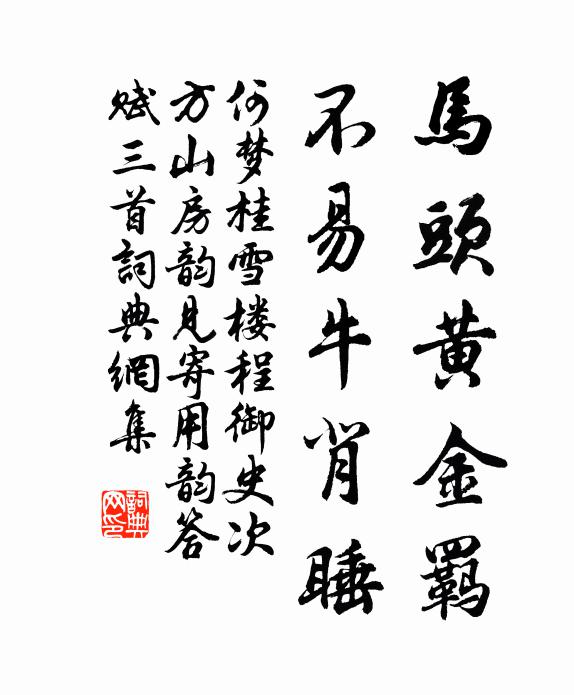 馬頭黄金羈
不易牛背睡
何梦桂雪楼程御史次
方山房韵见寄用韵答
赋三首詞典網集
詞典
网印